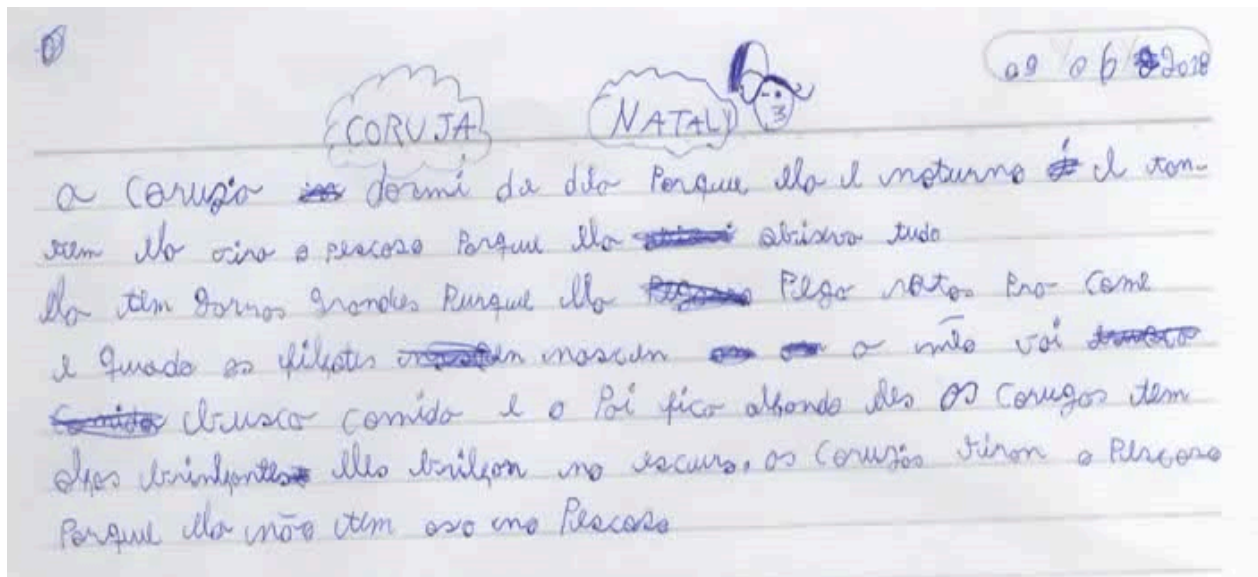 09 06 2018
CORUJA NATALY
a coruga dormi da dia Porque ela e noturna e ton-
tem ela vira o pescoso Porque ela abiserva tudo
ela tem garras grandes Purque ela Pega ratos Pra come
e quado os filhotes nascen a mãe vai
busca comida e o Pai fica alhando eles as corugas tem
olhos brinlhantes eles brilhan no escuro. as corugas viran o Pescoso
Porque ela não tem oso no Pescoso